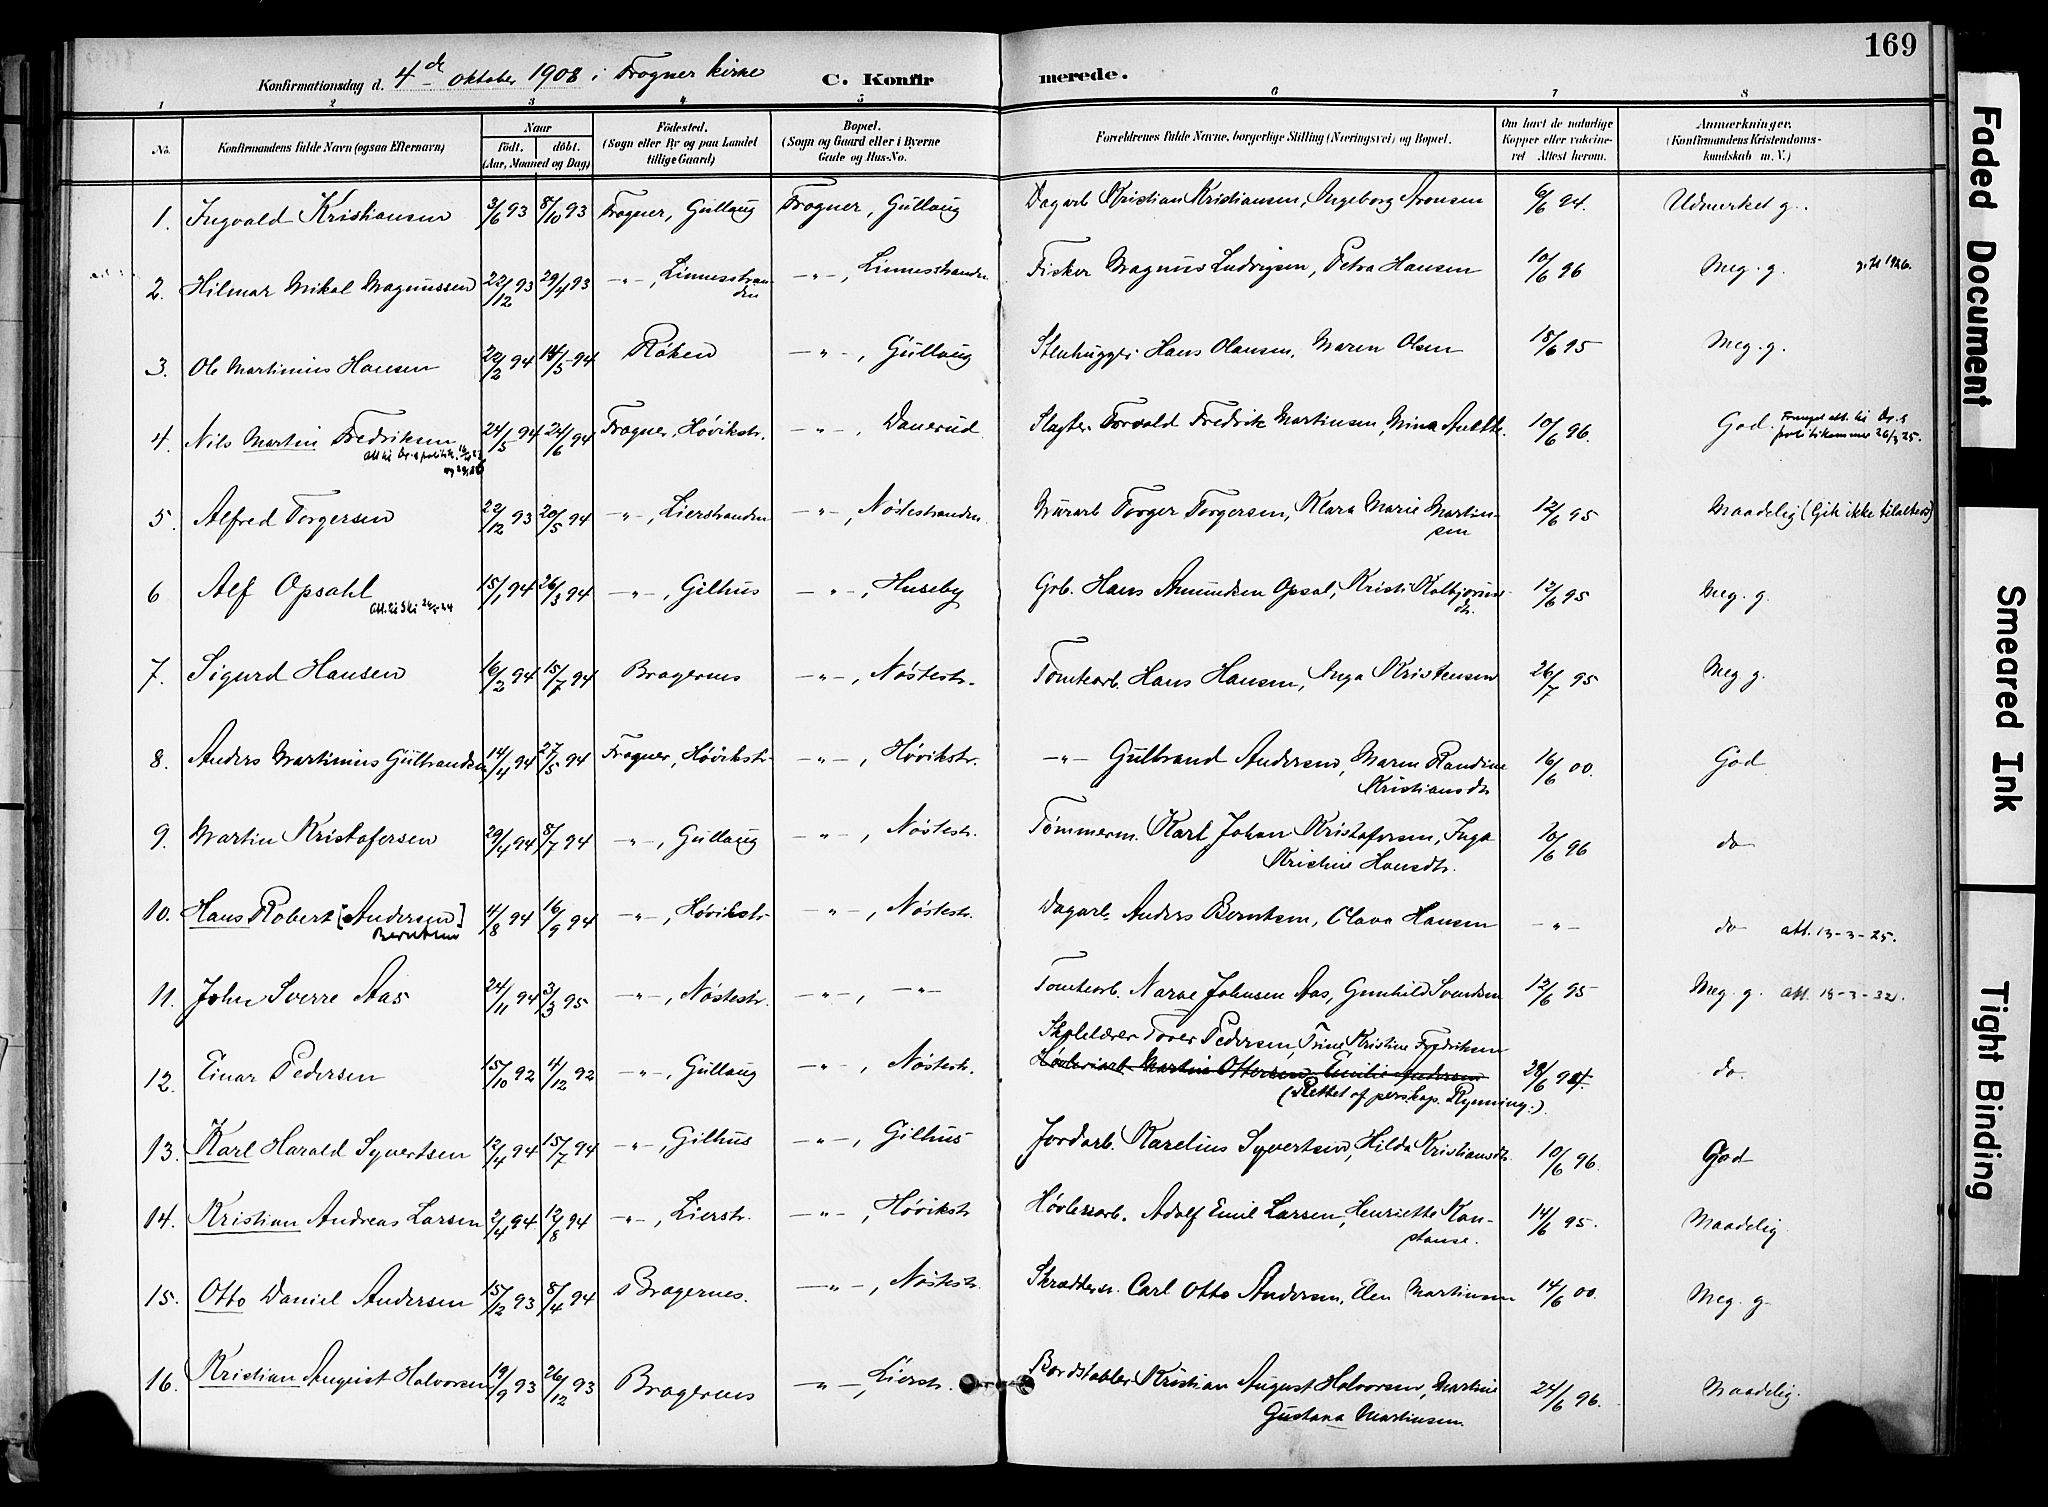 169
Konfirmationsdag d. 4de oktober 1908 i Frogner kirke C. Konfirmerede.
1 2 3 4 5 6 7 8
No. Konfirmandens fulde Navn (ogsaa Efternavn) Naar født. døbt. (Aar, Maaned og Dag) Fødested. (Sogn eller By og paa Landet tillige Gaard) Bopæl. (Sogn og Gaard eller i Byerne Gade og Hus-No. Forældrenes fulde Navne, borgerlige Stilling (Næringsvei) og Bopæl. Om havt de naturlige Kopper eller vakcineret Attest herom. Anmærkninger. (Konfirmandens Kristendomskundskab m. V.)
1. Ingvald Kristiansen 3/6 93 8/10 93 Frogner, Gullaug Frogner, Gullaug Dagarb. Kristian Kristiansen, Ingeborg Aronsen 6/6 94. Udmerket g.
2. Hilmar Mikal Magnussen 22/12 93 29/4 93 -"-, Linnesstranden -"-, Linnesstranden Fisker Magnus Ludvigsen, Petra Hansen 10/6 96 Meg. g. g. H 1926.
3. Ole Martinius Hansen 22/2 94 14/5 94 Røken -"-, Gullaug Stenhugger Hans Olausen, Maren Olsen 18/6 95 Meg. g.
4. Nils Martin Fredriksen 24/5 94 24/6 94 Frogner, Høvikstr. -"-, Danerud Slagter Torvald Fredrik Martinsen, Mina 10/6 96. God.
5. Alfred Torgersen 22/12 93 20/5 94 -"-, Lierstranden -"-, Nøstestranden Murarb Torger Torgersen, Klara Marie Martinsen 12/6 95 Maadelig (Gik ikke tilalters)
6 Alf Opsahl 15/1 94 26/3 94 -"-, Gilhus -"-, Huseby Grb. Hans Amundsen Opsal, Kristi Kolbjørnsdr. 12/6 95 Meg. g.
7. Sigurd Hansen 16/2 94 15/7 94 Bragernes -"-, Nøstestr. Tomtearb. Hans Hansen, Inga Kristensen 26/7 95 Meg g.
8. Anders Martinius Gulbrandsen 14/4 94 27/5 94 Frogner, Høvikstr. -"-, Høvikstr. -"- Gulbrand Andersen, Maren Randine Kristiansdr. 16/6 00. God
9. Martin Kristofersen 29/4 94 8/7 94 -"-, Gullaug -"-, Nøstestr. Tømmerm. Karl Johan Kristofersen, Inga Kristine Hansdtr. 10/6 96 do
10. Hans Robert [Andersen] Berntsen 4/8 94 16/9 94 -"-, Høvikstr -"-, Nøstestr. Dagarb. Anders Berntsen, Olava Hansen -"- do att. 13-3-25.
11. John Sverre Aas 24/11 94 3/3 95 -"-, Nøstestr. -"-, -"- Tomtearb. Narve Johnsen Aas, Gunhild Svendsen 12/6 95 Meg. g. att. 15-3-32.
12. Einar Pedersen 15/10 92 4/12 92 -"-, Gullaug -"-, Nøstestr. Skolelærer Tover Pedersen, Trine Kristine Fredriksen
Høvleriarb. Martin Ottersen, Emilie Andersen 28/6 94. do.
(Rettet af perskap. Rynning.)
13. Karl Harald Syvertsen 12/4 94 15/7 94 -"-, Gilhus -"-, Gilhus Jordarb. Karelius Syvertsen, Hilda Kristiansdr. 10/6 96. God
14. Kristian Andreas Larsen 2/4 94 12/8 94 -"-, Lierstr. -"-, Høvikstr Høvlerarb. Adolf Emil Larsen, Henriette Konstanse. 14/6 95. Maadelig.
15. Otto Daniel Andersen 15/12 93 8/4 94 Bragernes. -"-, Nøstestr. Skrædder Carl Otto Andersen, Elen Martinsen 14/6 00. Meg. g.
16. Kristian August Halvorsen 19/9 93 26/12 93 Bragernes -"-, Lierstr. Bordstabler Kristian August Halvorsen, Martine Gustava Martinsen. 24/6 96. Maadelig.
Faded Document
Smeared Ink
Tight Binding